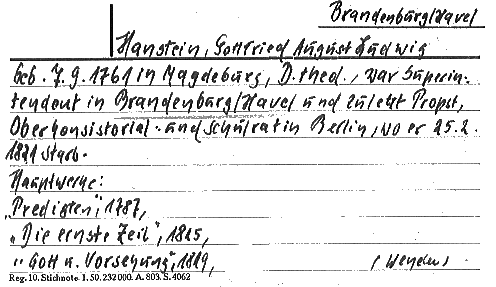 Brandenburg/Havel
Hanstein, Gottfried August Ludwig
Geb. 7.9.1761 in Magdeburg, D. theol., war Superin-
tendent in Brandenburg/Havel und zuletzt Propst,
Oberkonsistorial- und Schulrat in Berlin, wo er 25.2.
1821 starb.
Hauptwerke:
„Predigten“, 1787,
„Die ernste Zeit“, 1815,
„Gott u. Vorsehung“, 1819,
Reg. 10. Stichnote. 1. 50. 232 000. A. 803. S. 4062